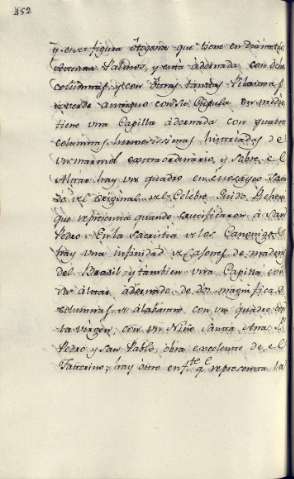 352
y es en figura otogona que tiene en diametro
sesenta Palmos, y está adornada con ocho
colunnas, y con otras tantas Pilastras
y con su Cupula en medio
tiene una Capilla adornada con quatro
columnas, hermosissimas historiadas de
un marmol extraordinario, y sobre el
Altar hay un quadro
del original del Celebre Guido Rheni
que representa quando crucificaron á San
Pedro. En la Sacristia de los Canonigos
hay una infinidad de Cajones de madera
del Brasil y tambien una Capilla con
un Altar, adornado de dos magnificas
columnas de Alabastro, con un quadro de
la Virgen, con un Niño, Santa Ana, Sn
Pedro y San Pablo, obra excelente de el
Fattorino; y hay otro en fte q representa la